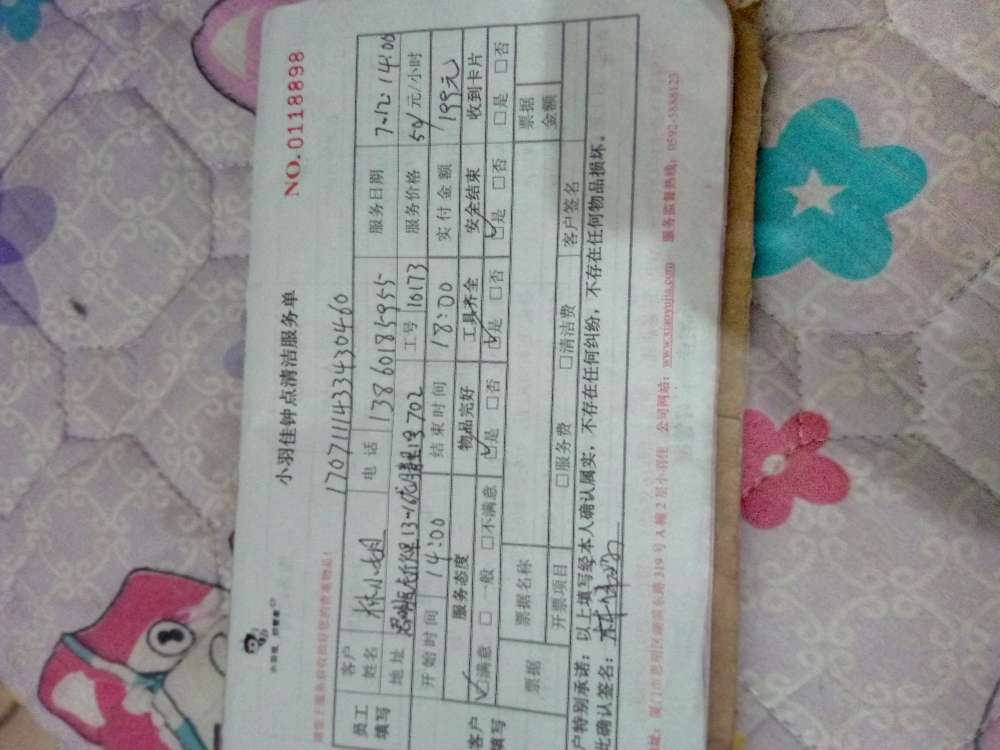 小羽佳钟点清洁服务单
NO.0118898
170711143343 0460
员工填写
客户姓名 林小姐 电话 13860185955 服务日期 7.12.14:00
地址 13-702 工号 10173 服务价格 50/元/小时
开始时间 14:00 结束时间 18:00 实付金额 199元
客户填写
服务态度 物品完好 工具齐全 安全结束 收到卡片
☑满意 □一般 □不满意 ☑是 □否 ☑是 □否 ☑是 □否 □是 □否
票据 票据名称 票据金额
开票项目 □服务费 □清洁费 客户签名
户特别承诺：以上填写经本人确认属实，不存在任何纠纷，不存在任何物品损坏。
此确认签名：
319号A幢2层小羽佳 公司网站：www.xiaoyujia.com 服务监督热线：0592-5686123